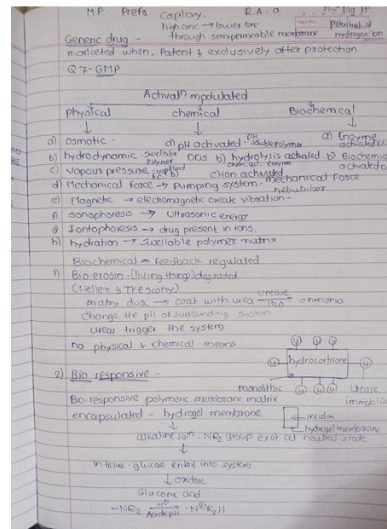 MP- Prefs Capillary. R.A-a
high conc → lower conc
Through semipermeable membrane
Potential of
hydrogen ion
Generic drug :-
marketed when, Patent & exclusively after protection
Q7-GMP
Activatn modulated
physical chemical Biochemical
a) osmotic - a) pH activated - pH soluble polymer a) Enzyme activated
b) hydrodynamic - swellable polymer DDS b) hydrolysis activated b) Biochemical activated
c) vapous pressure - c) chion activated
d) Mechanical force → Pumping system - mechanical force nebuliser
e) Magnetic → electromagnetic vibration -
f) sonophoresis → Ultrasonic energy
g) Iontophoresis → drug present in ions.
h) hydration → swellable polymer matrix
Biochemical - Feedback regulated
1) Bio erosin - (living things) degraded
(Heller & Treslony)
matrix disc → coat with urea urease H2O ammonia
change the pH of surrounding system
urea trigger the system
no physical & chemical means
U U U
U hydrocarbone U
monolithic U U U Urease
2) Bio-responsive -
Bio responsive polymeric membrane matrix
encapsulated - hydrogel membrane
→ insulin
→ hydrogel membrane
alkaline soln - NR2 group exist at neutral state
glucose enter into system
↓ oxidase
Gluconic acid
-NR2 Acidic pH N⊕R2H